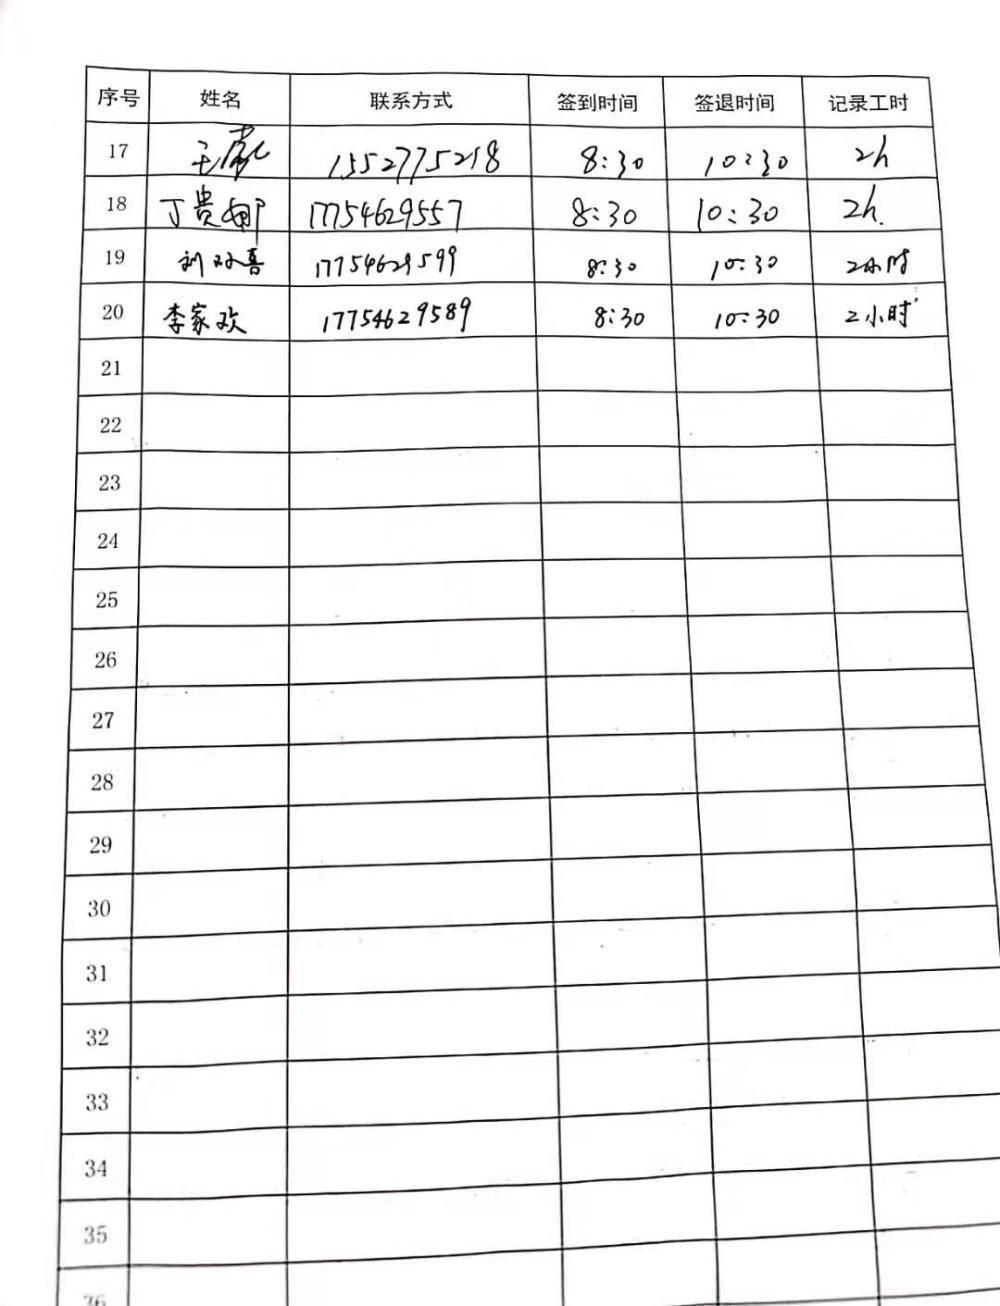 序号 姓名 联系方式 签到时间 签退时间 记录工时
17 王 15527775218 8:30 10:30 2h
18 丁贵娜 17754629557 8:30 10:30 2h.
19 刘双喜 17754629599 8:30 10:30 2小时
20 李家欢 17754629589 8:30 10:30 2小时
21
22
23
24
25
26
27
28
29
30
31
32
33
34
35
36